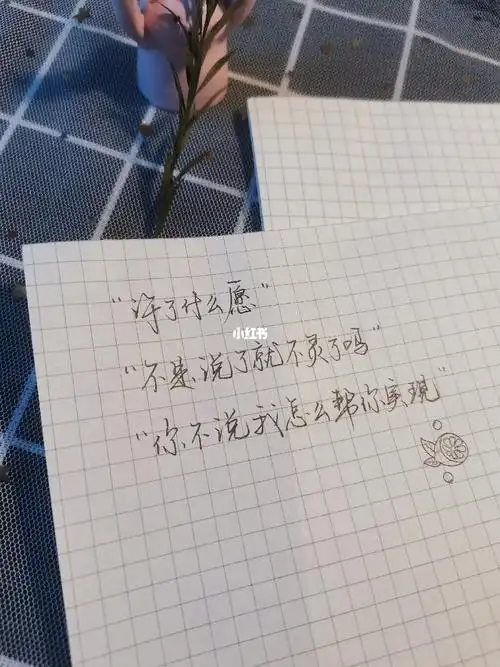 “许了什么愿”
小红书
“不是说了就不灵了吗”
“你不说我怎么帮你实现”